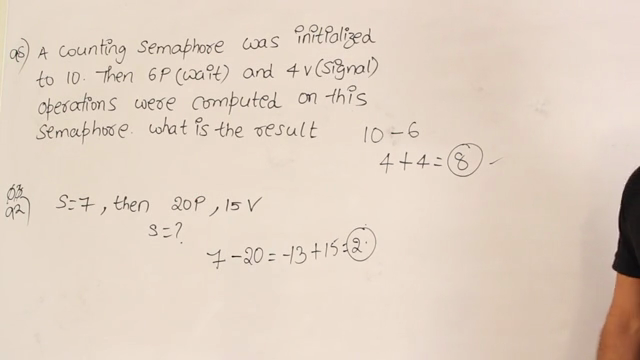 Q5) A counting semaphore was initialized
to 10. Then 6P(wait) and 4V(signal)
operations were computed on this
semaphore. what is the result
10-6
4+4=8
Q2) S=7, then 20P, 15V
S=?
7-20=-13+15=2.